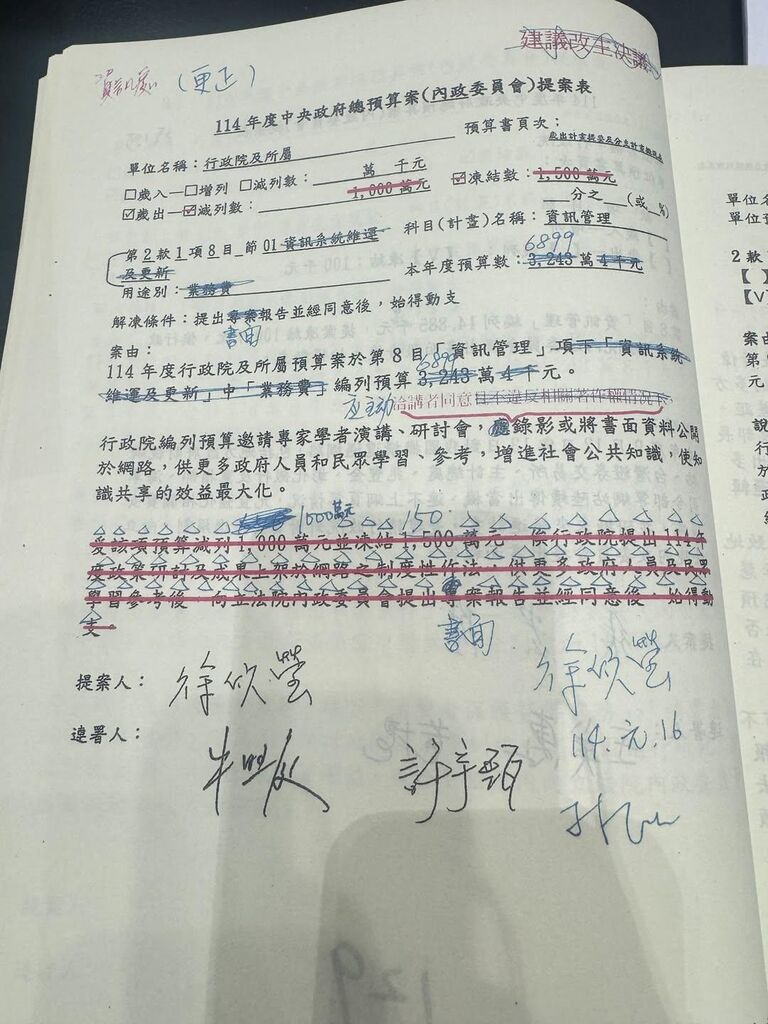 建議改主決議
(更正)
114年度中央政府總預算案(內政委員會)提案表
單位名稱：行政院及所屬
預算書頁次：
歲出計畫提要及分支計畫概況表
□歲入—□增列 □減列數： 萬 千元
☑凍結數：1,500萬元
☑歲出—☑減列數： 1,000萬元
分之 (或 %)
第2款1項8目_節01資訊系統維運及更新
科目(計畫)名稱：資訊管理
6899
本年度預算數：3,243萬4千元
用途別：業務費
解凍條件：提出專案報告並經同意後，始得動支
書面
案由：
6899
114年度行政院及所屬預算案於第8目「資訊管理」項下「資訊系統
維運及更新」中「業務費」編列預算3,243萬4千元。
應主動洽講者同意且不違反相關著作權情況下
行政院編列預算邀請專家學者演講、研討會，應錄影或將書面資料公開
於網路，供更多政府人員和民眾學習、參考，增進社會公共知識，使知
識共享的效益最大化。
1000萬元 150
爰該項預算減列1,000萬元並凍結1,500萬元，俟行政院提出114年
度政策研討及成果上架於網路之制度性作法，供更多政府人員及民眾
學習參考後，向立法院內政委員會提出專案報告並經同意後，始得動
支。
書面
提案人：徐欣瑩
徐欣瑩
114.元.16
連署人：牛煦庭 許宇甄